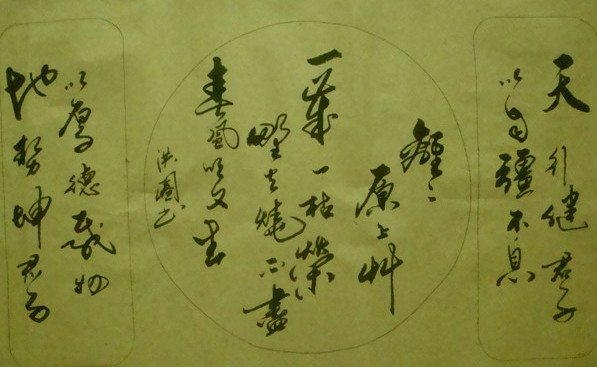 天行健君子
以自疆不息
離〻
原上艸
一歲一枯榮
野火燒不盡
春風吹又生
洪國
地勢坤君子
以厚德載物